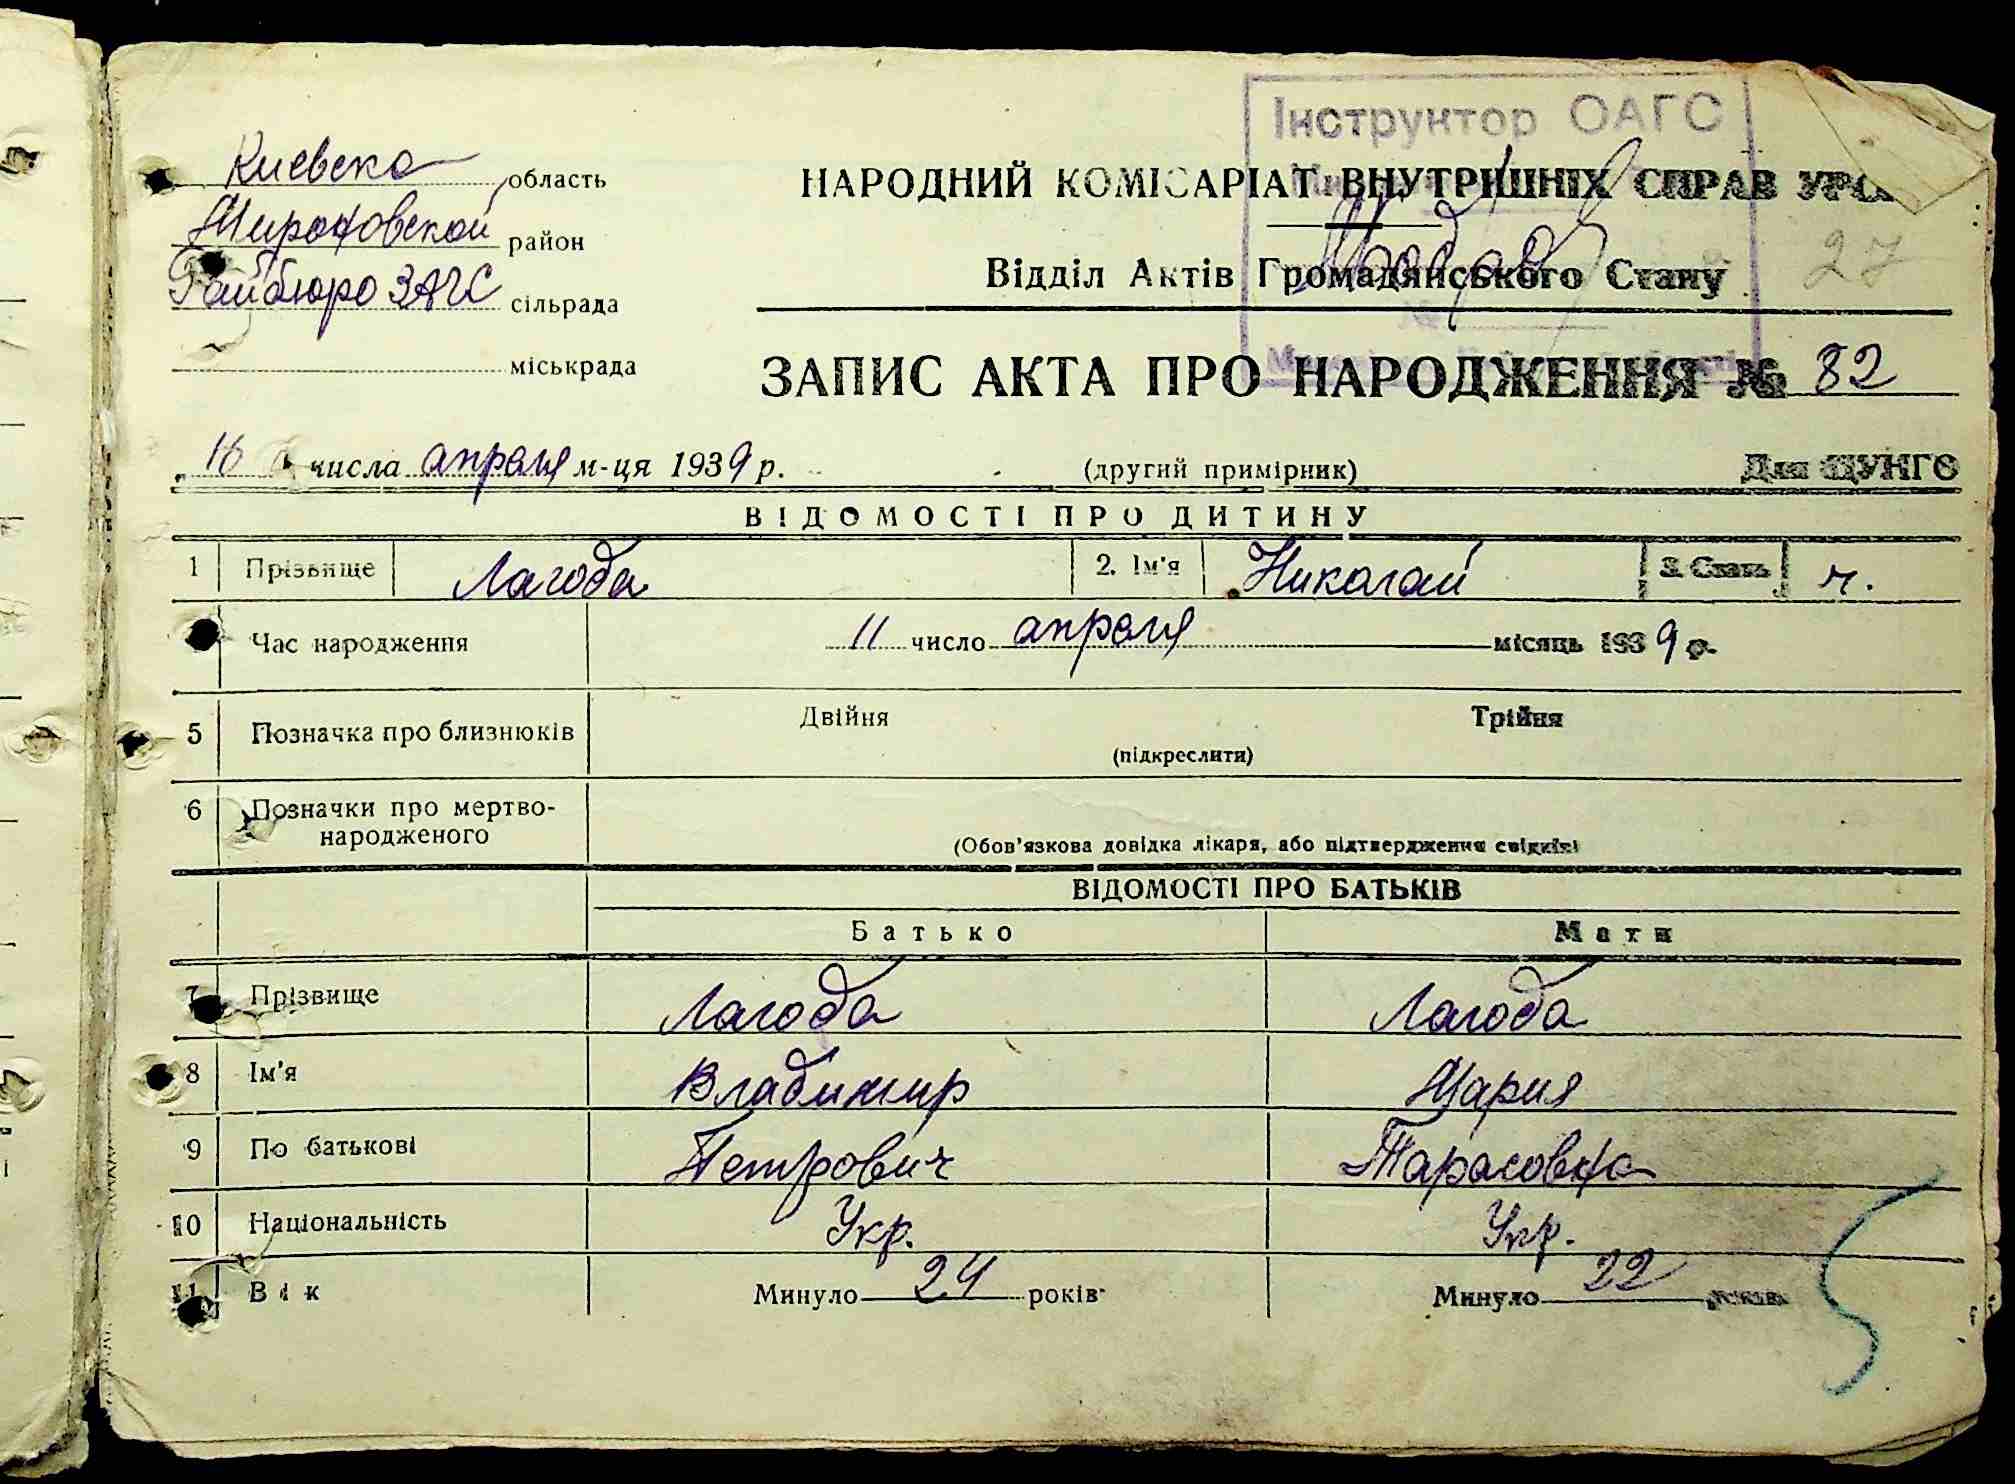 Інструктор ОАГС
Киевска область
Мироновской район
Райбюро ЗАГС сільрада
міськрада
НАРОДНИЙ КОМІСАРІАТ ВНУТРІШНІХ СПРАВ УРСР
Відділ Актів Громадянського Стану
27
ЗАПИС АКТА ПРО НАРОДЖЕННЯ № 82
„16 числа апреля м-ця 1939 р. (другий примірник) Для ЦУНГО
ВІДОМОСТІ ПРО ДИТИНУ
1 Прізвище Лагода 2. Ім'я Николай 3. Стать ч.
Час народження 11 число апреля місяць 1939 р.
5 Позначка про близнюків Двійня Трійня
(підкреслити)
6 Позначки про мертво-
народженого
(Обов'язкова довідка лікаря, або підтвердження свідків)
ВІДОМОСТІ ПРО БАТЬКІВ
Батько Мати
7 Прізвище Лагода Лагода
8 Ім'я Владимир Мария
9 По батькові Петрович Тарасовна
10 Національність Укр. Укр.
11 Вік Минуло 24 років Минуло 22 років